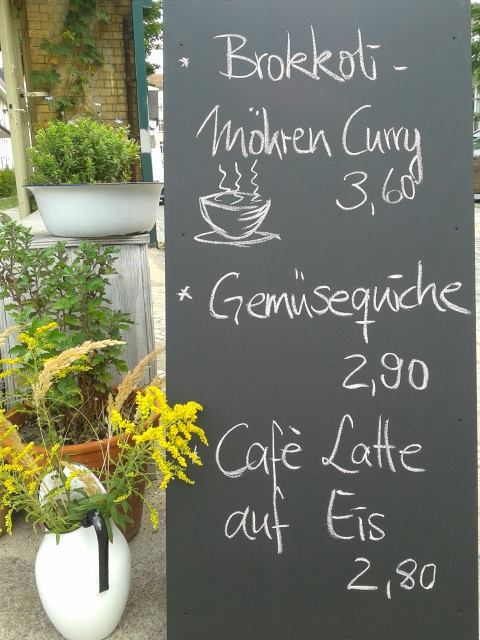 * Brokkoli-
Möhren Curry
3,60
* Gemüsequiche
2,90
Cafè Latte
auf Eis
2,80